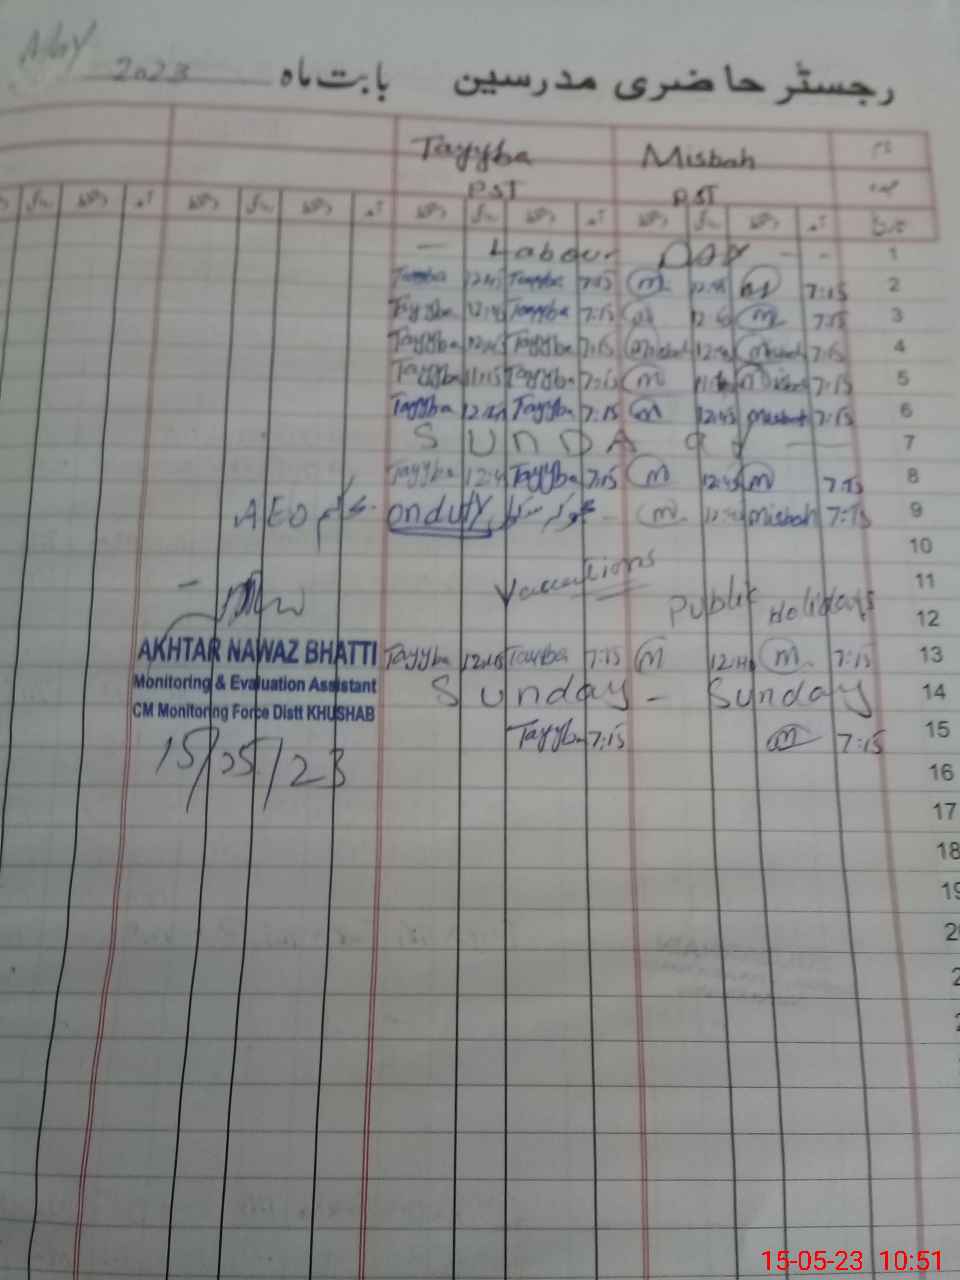 May
رجسٹر حاضری مدرسین بابت ماہ 2023
Tayyba Misbah
PST PST
- Labour DAY - - 1
Tayyba 12:45 Tayyba 7:15 m 12:45 m 7:15 2
Tayyba 12:45 Tayyba 7:15 12:45 m 7:15 3
Tayyba 12:45 Tayyba 7:15 Misbah 12:45 Misbah 7:15 4
Tayyba 11:15 Tayyba 7:15 m Misbah 7:15 5
Tayyba 12:45 Tayyba 7:15 m 12:45 Misbah 7:15 6
SUNDAY 7
Tayyba 12:45 Tayyba 7:15 m 12:45 m 7:15 8
AEO onduty m 12:45 misbah 7:15 9
10
Vacations 11
Public Holidays 12
AKHTAR NAWAZ BHATTI
Tayyba 12:45 Tayyba 7:15 m 12:45 m 7:15 13
Monitoring & Evaluation Assistant
Sunday - Sunday 14
CM Monitoring Force Distt KHUSHAB
Tayyba 7:15 m 7:15 15
15/05/23
16
17
18
19
15-05-23 10:51